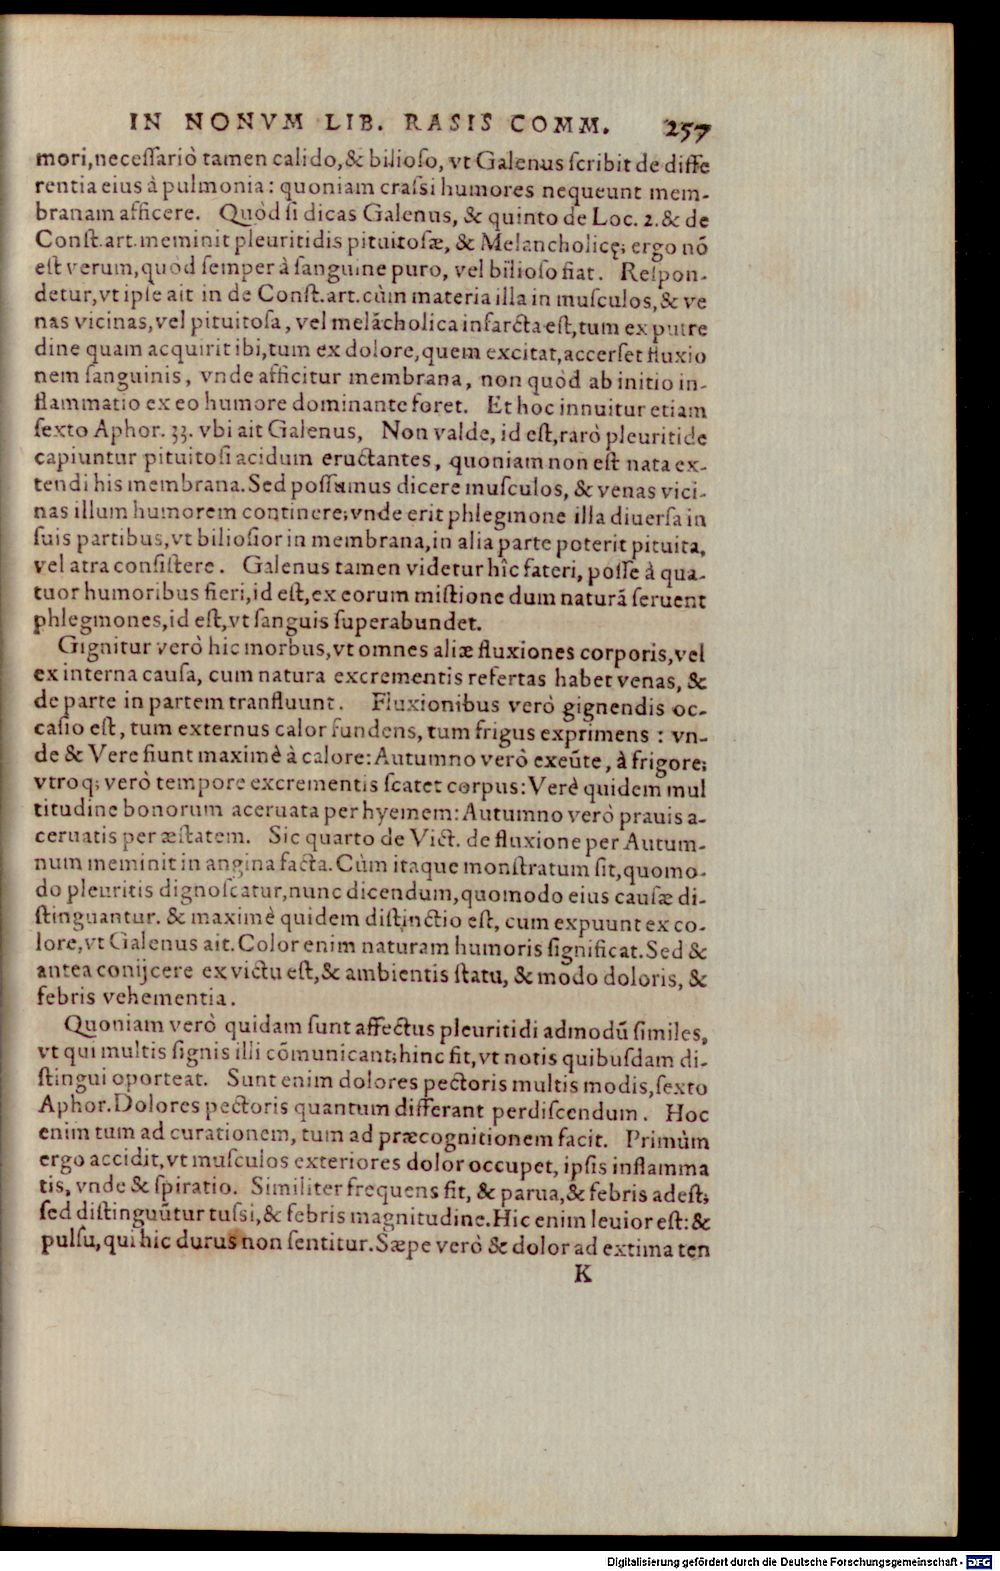 IN NONVM LIB. RASIS COMM. 257
mori, necessariò tamen calido, & bilioso, vt Galenus scribit de diffe
rentia eius à pulmonia: quoniam crassi humores nequeunt mem-
branam afficere. Quòd si dicas Galenus, & quinto de Loc. 2. & de
Const. art. meminit pleuritidis pituitosæ, & Melancholicę; ergo nō
est verum, quòd semper à sanguine puro, vel bilioso fiat. Respon-
detur, vt ipse ait in de Const. art. cùm materia illa in musculos, & ve
nas vicinas, vel pituitosa, vel melācholica infarcta est, tum ex putre
dine quam acquirit ibi, tum ex dolore, quem excitat, accerset fluxio
nem sanguinis, vnde afficitur membrana, non quòd ab initio in-
flammatio ex eo humore dominante foret. Et hoc innuitur etiam
sexto Aphor. 33. vbi ait Galenus, Non valde, id est, rarò pleuritide
capiuntur pituitosi acidum eructantes, quoniam non est nata ex-
tendi his membrana. Sed possumus dicere musculos, & venas vici-
nas illum humorem continere; vnde erit phlegmone illa diuersa in
suis partibus, vt biliosior in membrana, in alia parte poterit pituita,
vel atra consistere. Galenus tamen videtur hîc fateri, posse à qua-
tuor humoribus fieri, id est, ex eorum mistione dum naturā seruent
phlegmones, id est, vt sanguis superabundet.
Gignitur verò hic morbus, vt omnes aliæ fluxiones corporis, vel
ex interna causa, cum natura excrementis refertas habet venas, &
de parte in partem tranfluunt. Fluxionibus verò gignendis oc-
casio est, tum externus calor fundens, tum frigus exprimens : vn-
de & Vere fiunt maximè à calore: Autumno verò exeūte, à frigore;
vtroq; verò tempore excrementis scatet corpus: Verè quidem mul
titudine bonorum aceruata per hyemem: Autumno verò prauis a-
ceruatis per æstatem. Sic quarto de Vict. de fluxione per Autum-
num meminit in angina facta. Cùm itaque monstratum sit, quomo-
do pleuritis dignoscatur, nunc dicendum, quomodo eius causæ di-
stinguantur. & maximè quidem distinctio est, cum expuunt ex co-
lore, vt Galenus ait. Color enim naturam humoris significat. Sed &
antea conijcere ex victu est, & ambientis statu, & modo doloris, &
febris vehementia.
Quoniam verò quidam sunt affectus pleuritidi admodū similes,
vt qui multis signis illi cōmunicant; hinc fit, vt notis quibusdam di-
stingui oporteat. Sunt enim dolores pectoris multis modis, sexto
Aphor. Dolores pectoris quantum differant perdiscendum. Hoc
enim tum ad curationem, tum ad præcognitionem facit. Primùm
ergo accidit, vt musculos exteriores dolor occupet, ipsis inflamma
tis, vnde & spiratio. Similiter frequens fit, & parua, & febris adest;
sed distinguūtur tussi, & febris magnitudine. Hic enim leuior est: &
pulsu, qui hic durus non sentitur. Sæpe verò & dolor ad extima ten
K
Digitalisierung gefördert durch die Deutsche Forschungsgemeinschaft - DFG